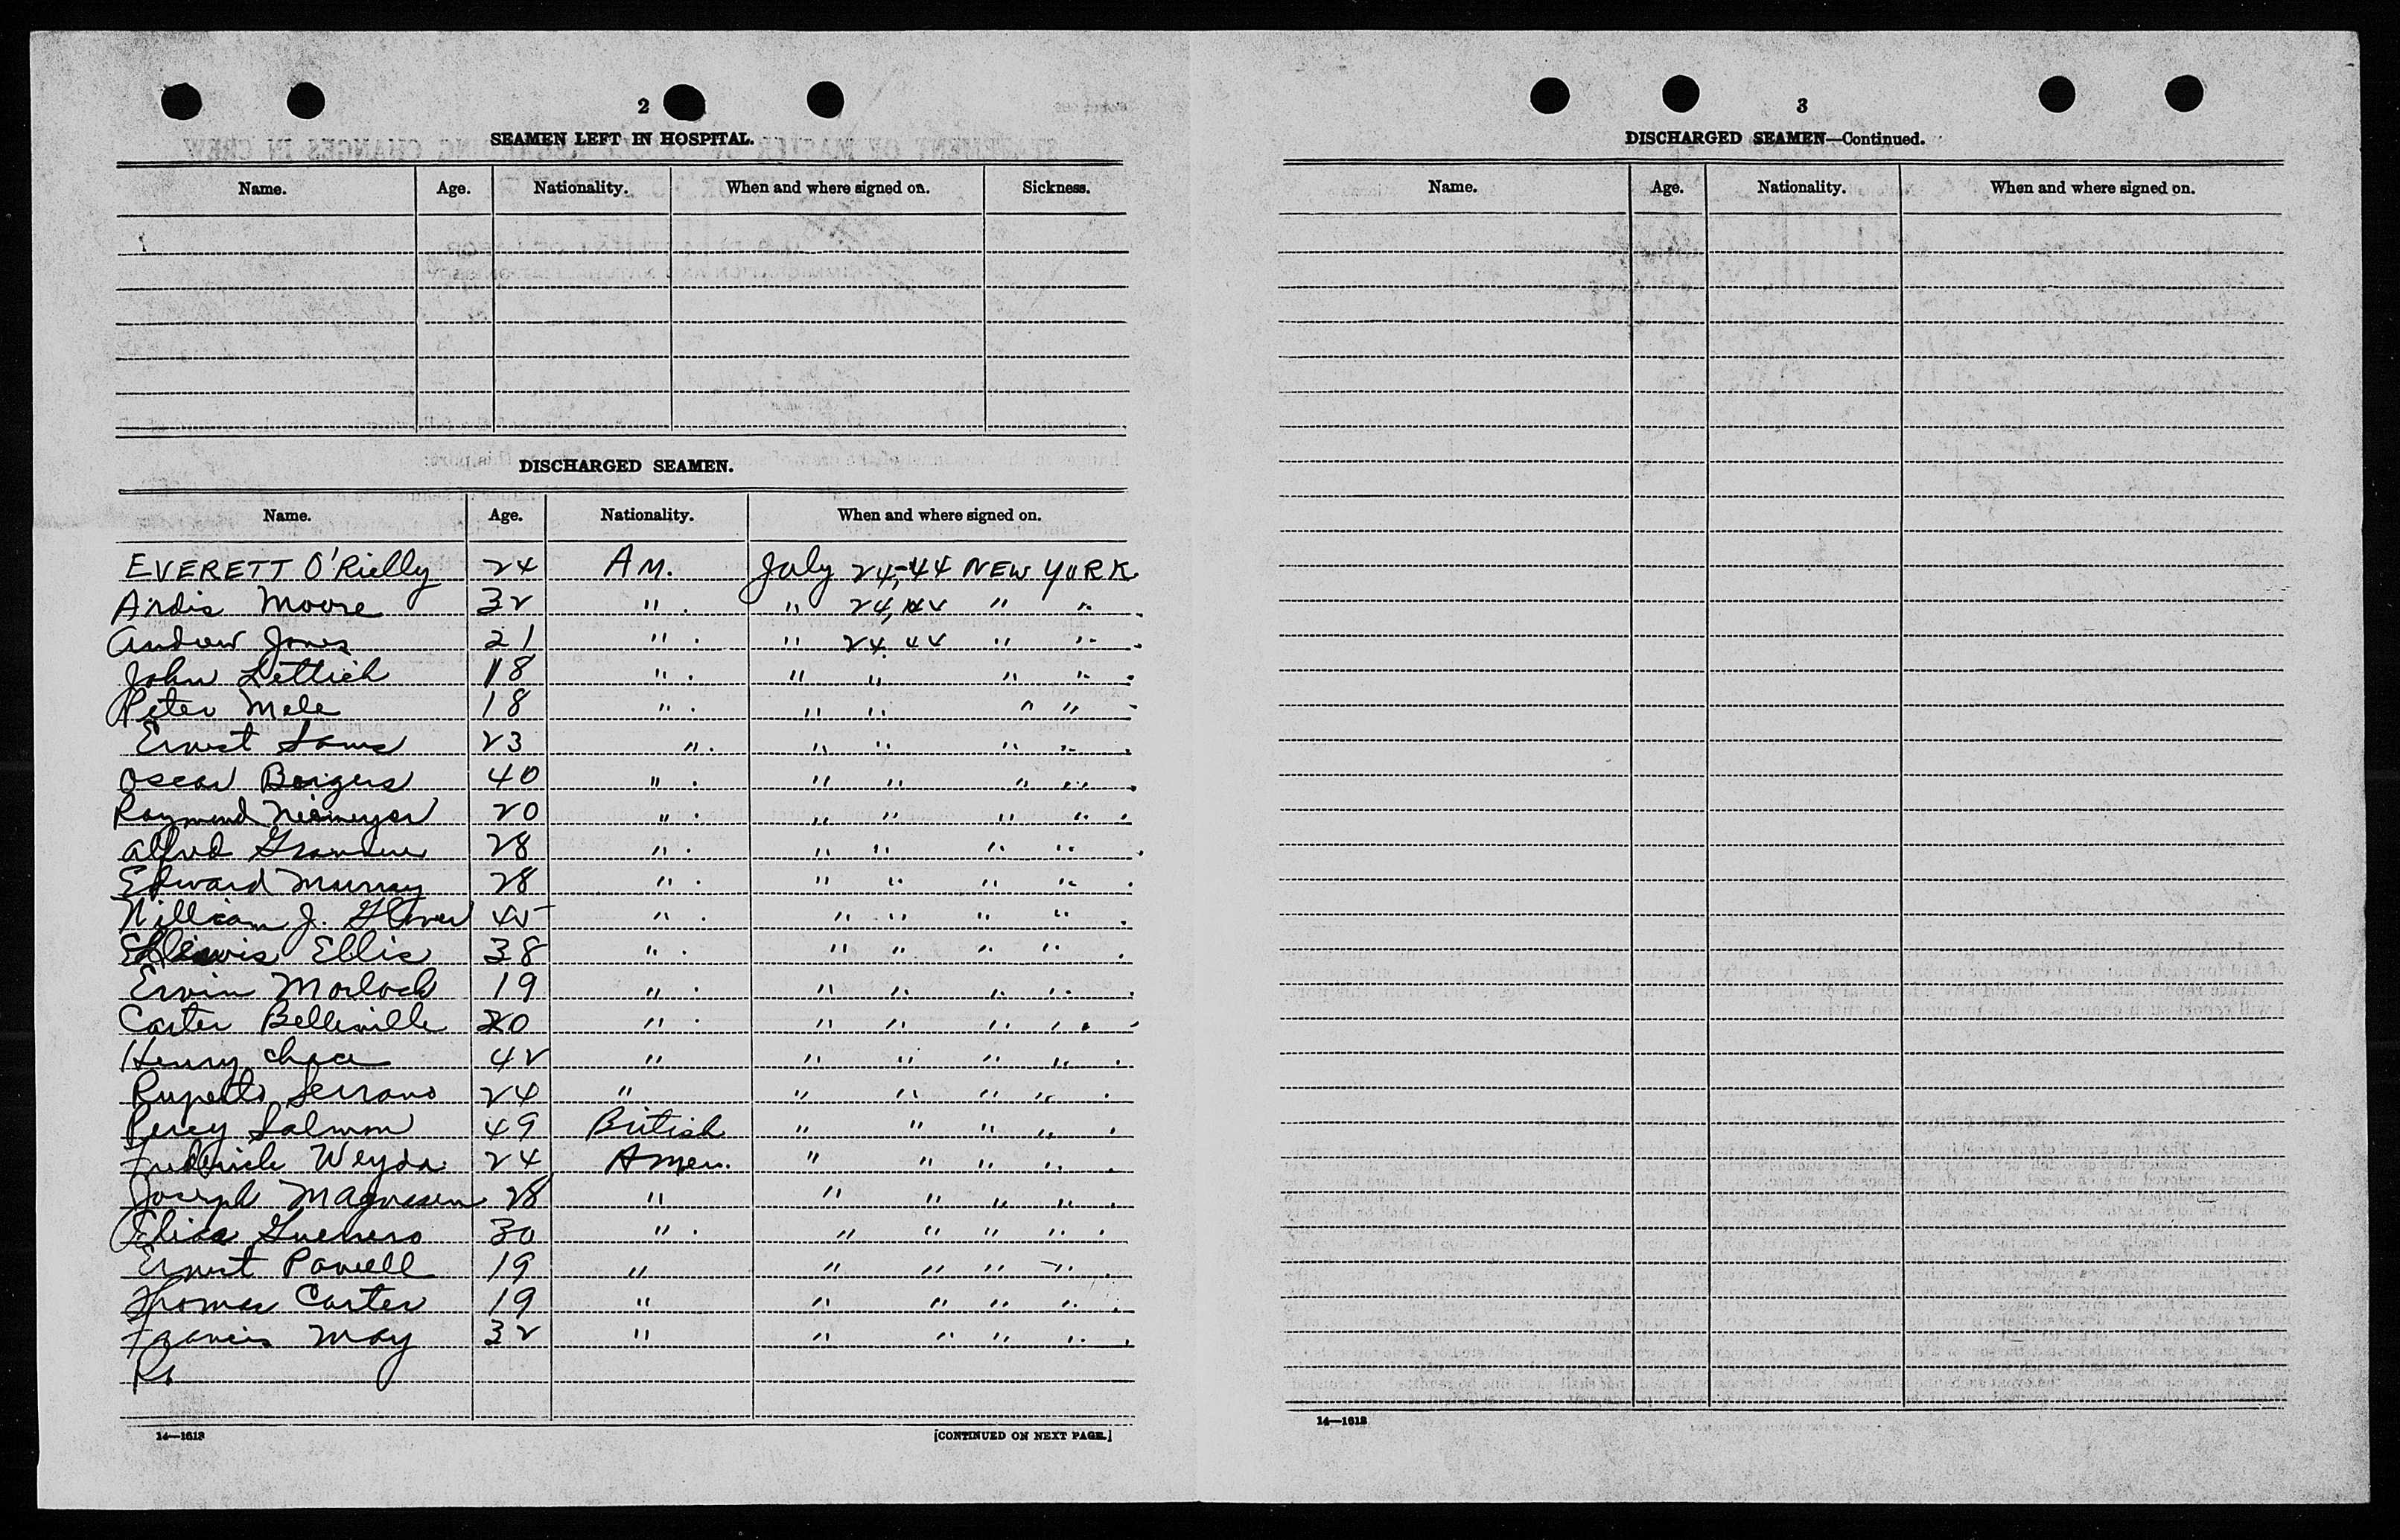 2
SEAMEN LEFT IN HOSPITAL.
Name. Age. Nationality. When and where signed on. Sickness.
DISCHARGED SEAMEN.
Name. Age. Nationality. When and where signed on.
EVERETT O'Rielly 24 AM. July 24,-44 NEW YORK
Ardis Moore 32 " . " 24,44 " " .
Andrew Jones 21 " . " 24.44 " " .
John Lettich 18 " . " " " " .
Peter Mele 18 " . " " " " -
Ernest Sams 23 " . " " " " .
Oscar Beigers 40 " . " " " " .
Raymond Niemeyer 20 " . " " " " .
Alfred 28 " . " " " " .
Edward Murray 28 " . " " " " .
William J. Glover 45 " . " " " " .
Ellis 38 " . " " " " .
Ervin Morlock 19 " . " " " " .
Carter Belleville 20 " . " " " " .
Henry Chace 42 " " " " " .
Ruperto Serrano 24 " " " " " .
Percy Salmon 49 British " " " " .
Frederick Weyda 24 Amer. " " " " .
Joseph Magnusen 28 " " " " " .
Elias Guerrero 30 " . " " " " .
Ernest Powell 19 " " " " " .
Thomas Carter 19 " " " " " .
Francis May 32 " " " " " .
14—1613 [CONTINUED ON NEXT PAGE.]
3
DISCHARGED SEAMEN—Continued.
Name. Age. Nationality. When and where signed on.
14—1613